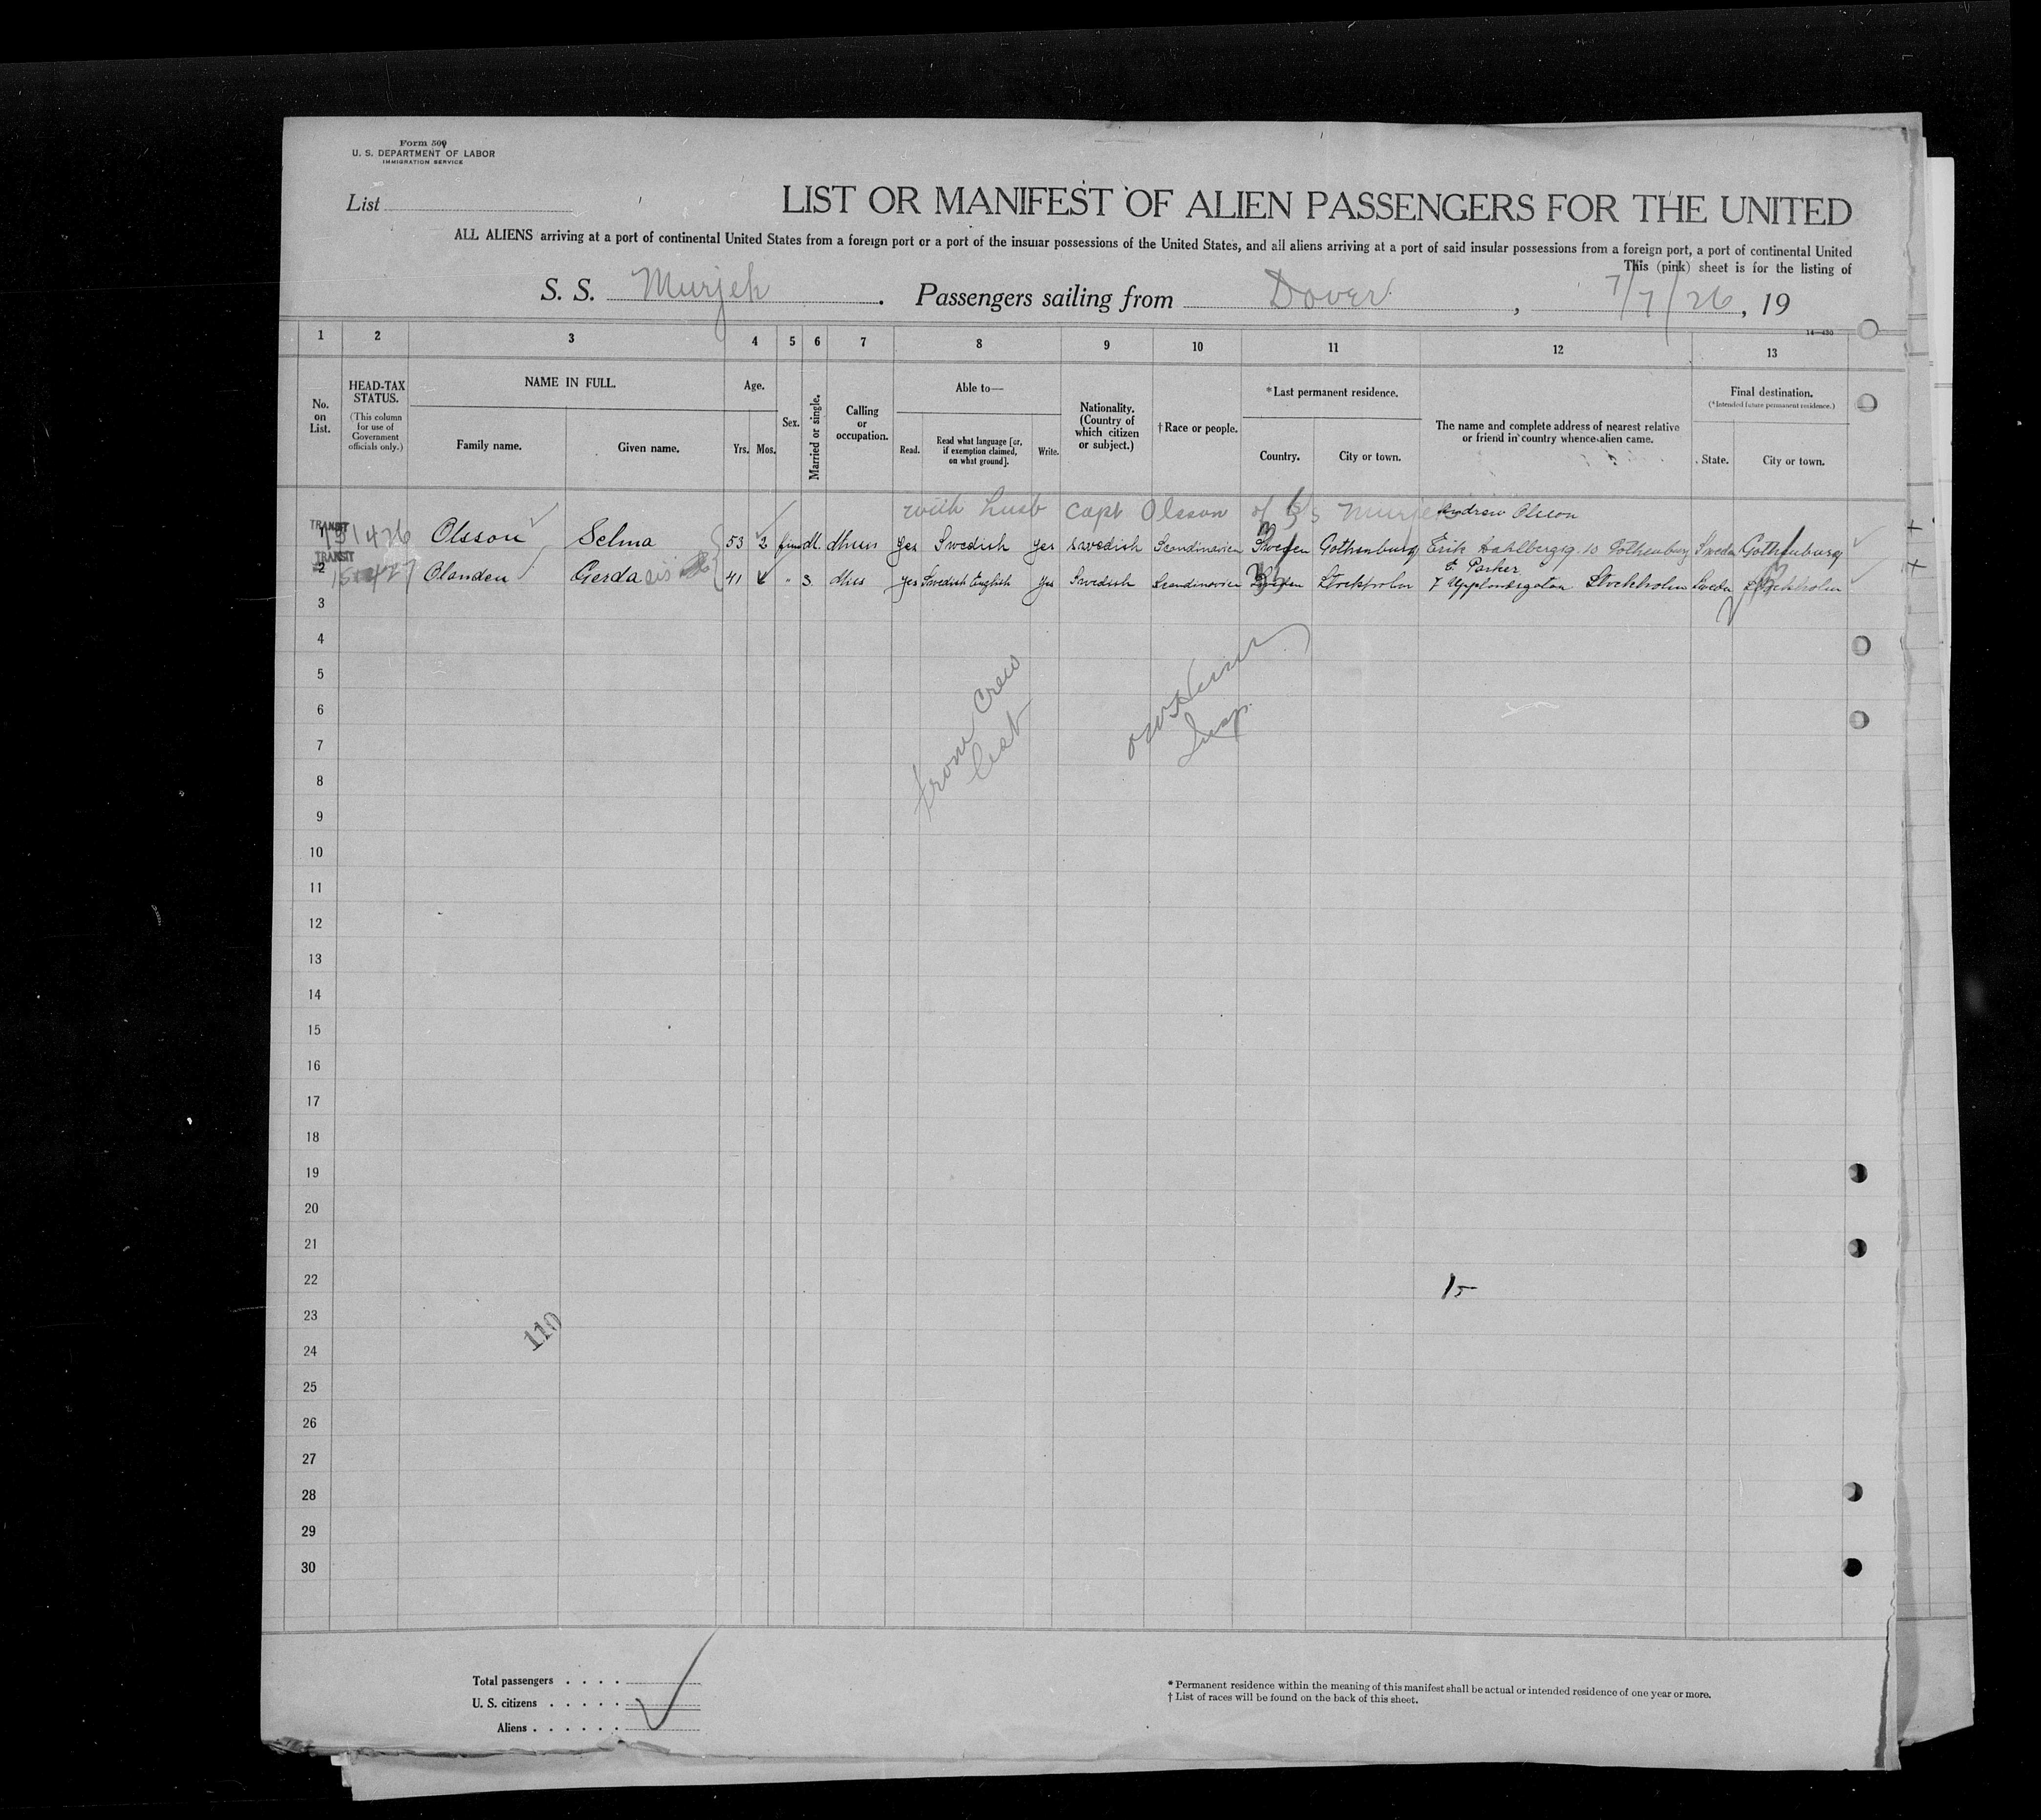 Form 500
U. S. DEPARTMENT OF LABOR
IMMIGRATION SERVICE
List
LIST OR MANIFEST OF ALIEN PASSENGERS FOR THE UNITED
ALL ALIENS arriving at a port of continental United States from a foreign port or a port of the insular possessions of the United States, and all aliens arriving at a port of said insular possessions from a foreign port, a port of continental United
This (pink) sheet is for the listing of
S. S. Murjek. Passengers sailing from Dover, 7/7/26, 19
14—430
1 2 3 4 5 6 7 8 9 10 11 12 13
No. on List.
HEAD-TAX STATUS.
(This column for use of Government officials only.)
NAME IN FULL.
Family name.
Given name.
Age.
Yrs. Mos.
Sex.
Married or single.
Calling or occupation.
Able to—
Read.
Read what language [or, if exemption claimed, on what ground].
Write.
Nationality. (Country of which citizen or subject.)
†Race or people.
*Last permanent residence.
Country.
City or town.
The name and complete address of nearest relative or friend in country whence alien came.
Final destination.
(*Intended future permanent residence.)
State.
City or town.
with husb Capt Olsson of S/S Murjek Andrew Olsson
TRANSIT
1 Olsson Selma 53 2 fem M. yes Swedish yes Swedish Scandinavien Sweden Gothenburg Erik Dahlbergsg. 10 Gothenburg Sweden Gothenburg
TRANSIT
E. Parker
2 Olanden Gerda 41 " S Miss yes Swedish English yes Swedish Scandinavien Sweden Stockholm 7 Upplandsgatan Stockholm Sweden Stockholm
3
4
5
6
7
8
9
10
11
12
13
14
15
16
17
18
19
20
21
22
23
24
25
26
27
28
29
30
from Crew
list
Insp.
15
110
Total passengers
U. S. citizens
Aliens
* Permanent residence within the meaning of this manifest shall be actual or intended residence of one year or more.
† List of races will be found on the back of this sheet.